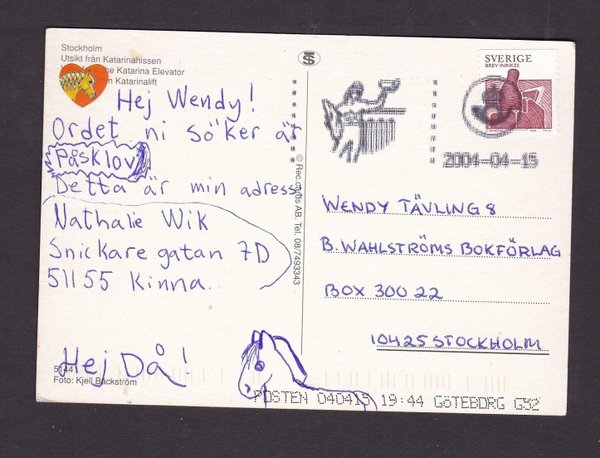 Stockholm
Utsikt från Katarinahissen
the Katarina Elevator
Katarinalift
Hej Wendy!
Ordet ni söker är
Påsklov
Detta är min adress
Nathalie Wik
Snickare gatan 7D
51155 Kinna.
Hej Då!
5144
Foto: Kjell Backström
© Rec.cards AB. Tel. 08/7493343
SVERIGE
BREV INRIKES
2004-04-15
WENDY TÄVLING 8
B. WAHLSTRÖMS BOKFÖRLAG
BOX 300 22
10425 STOCKHOLM
POSTEN 040415 19:44 GÖTEBORG G52